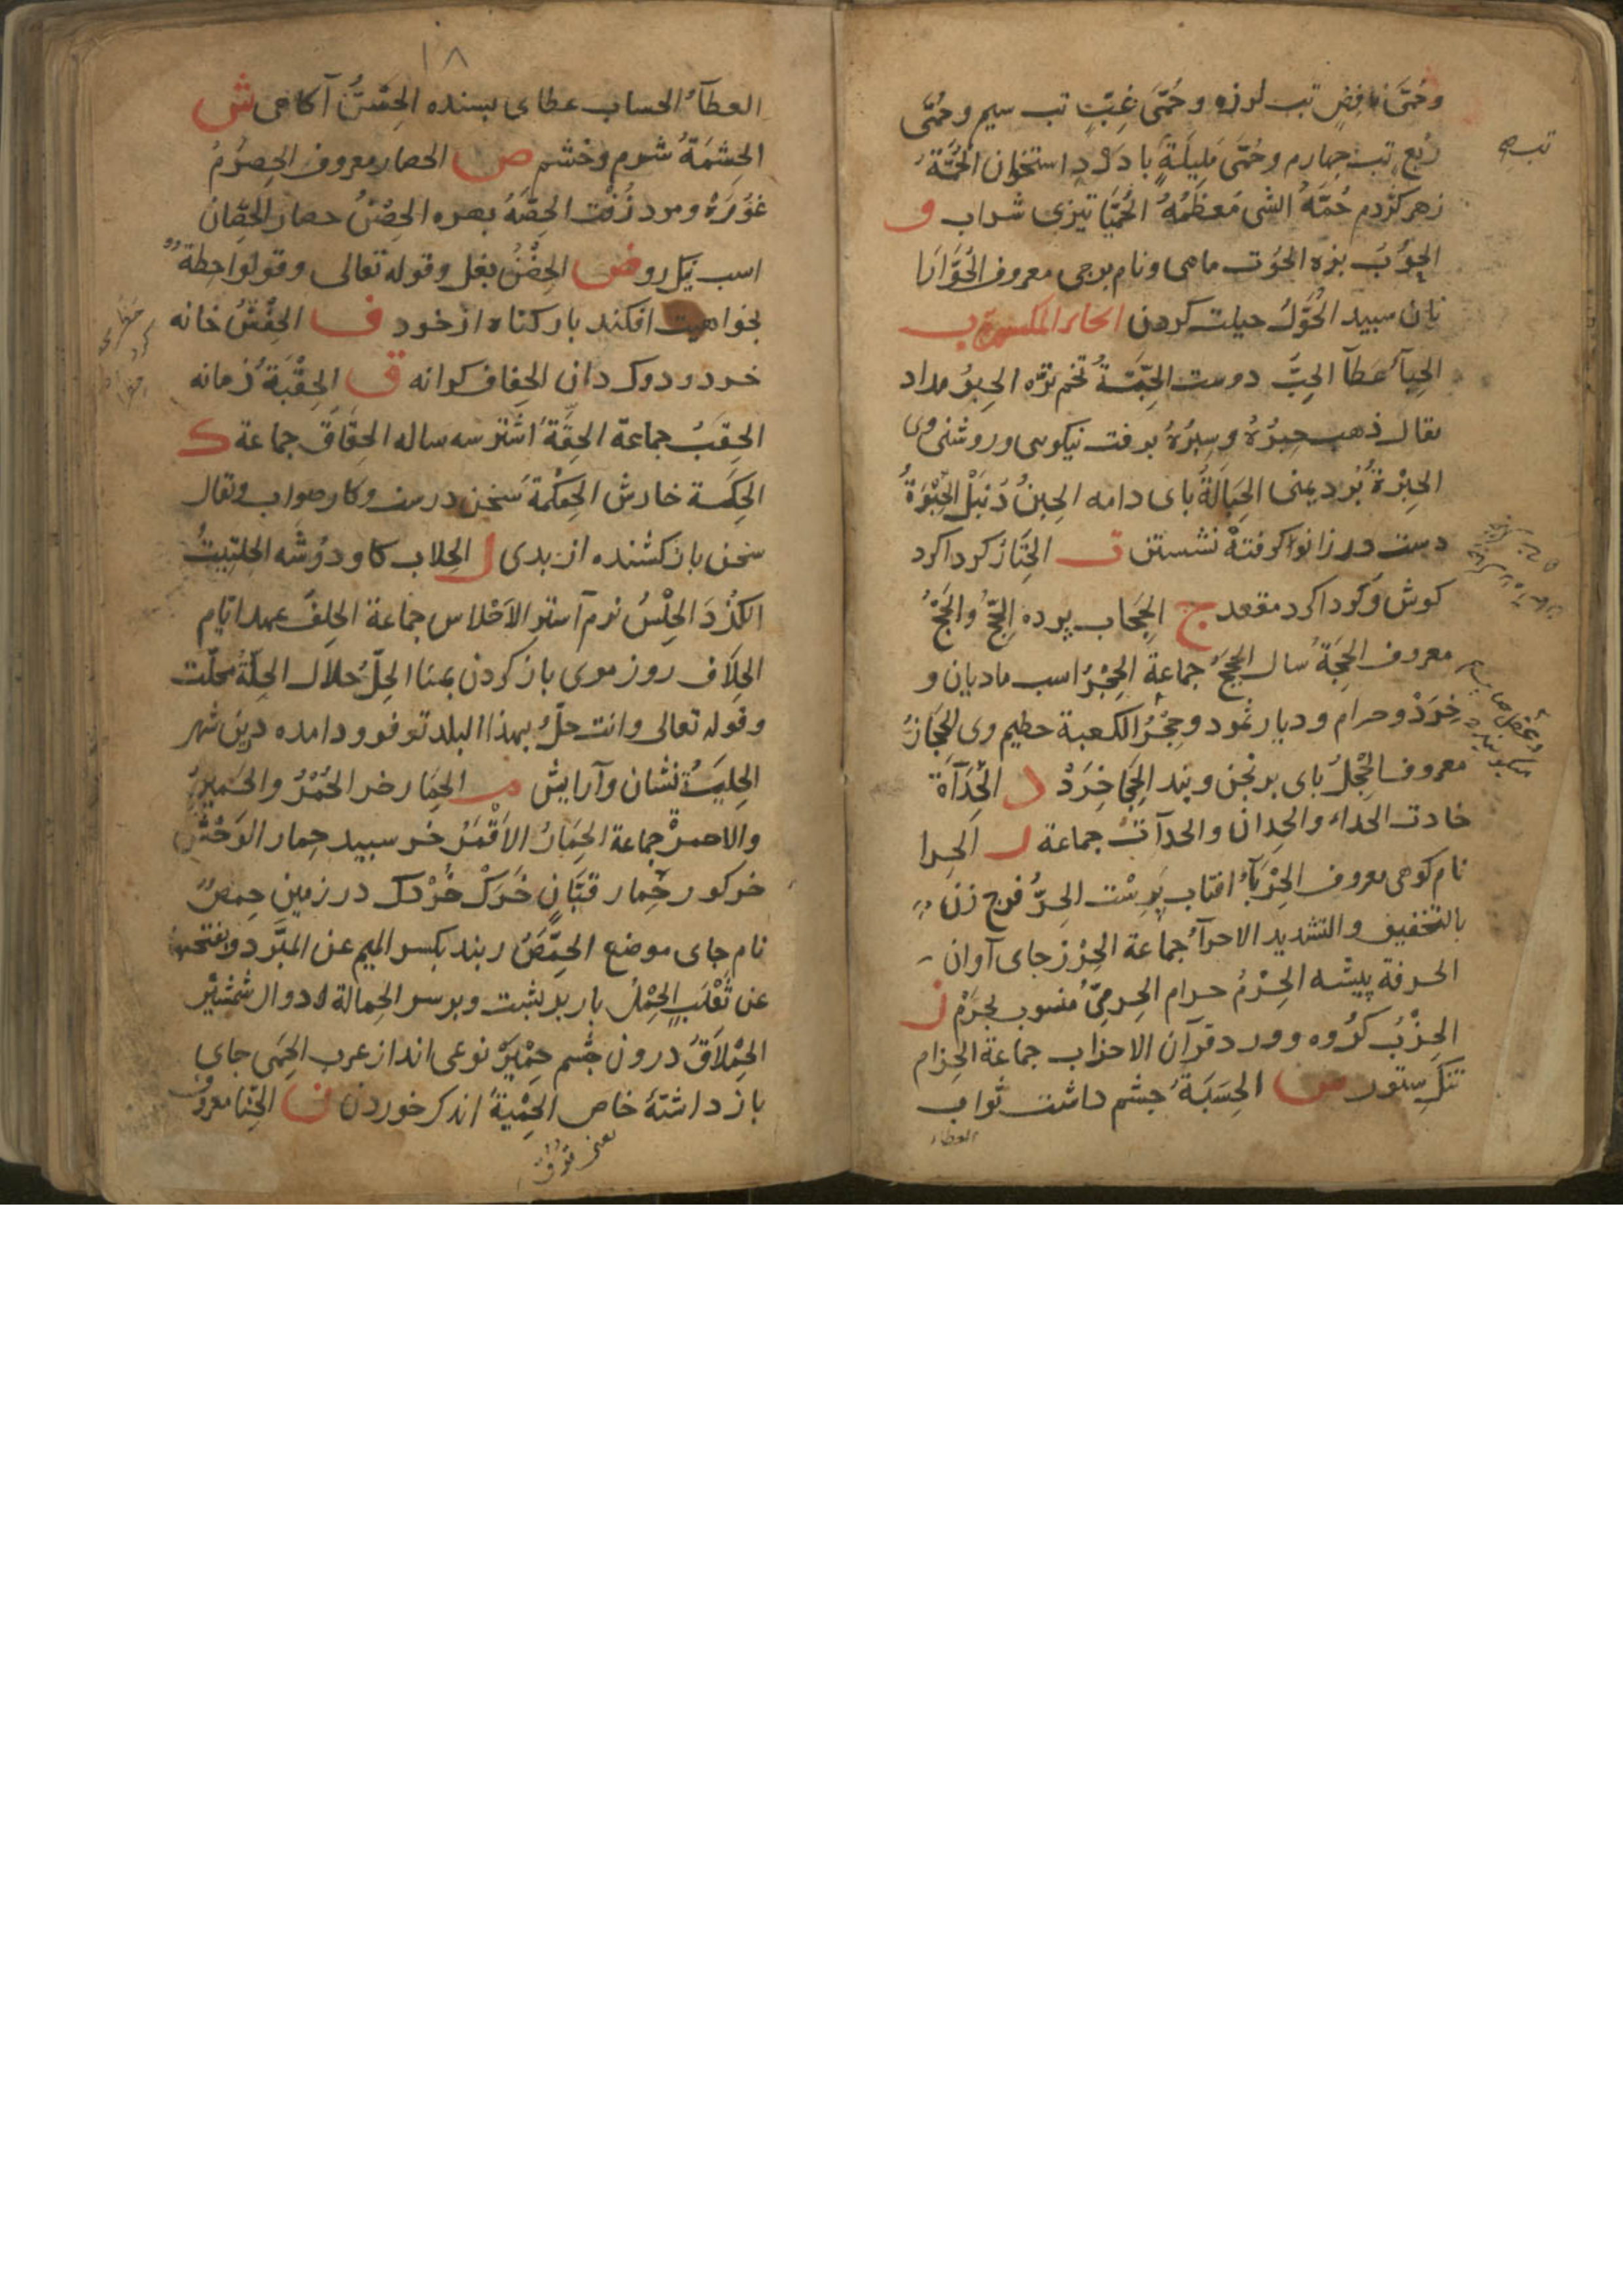 وحُمَّى نافِضٍ تب لرزه وحُمَّى غِبٍّ تب سیم وحُمَّى
رُبعٍ تب چهارم وحُمَّى مَلِیلَةٍ با درد استخوان الحُمَةُ
زهر کژدم حُمَّةُ الشی مُعظَمُهُ الحُمَیَّا تیزی شراب و
الحُوْبُ بزه الحُوت ماهی ونام برجی معروف الحُوَّارَا
نان سبید الحُوَّلُ حیلت کردن الحاء المکسورة ب
الحِبآءُ عطآ الحِبُّ دوست الحِبَّةُ تخم ترّه الحِبرُ مداد
یقال ذهب حِبرُهُ وسِبرُهُ برفت نیکوی وروشنی وی
الحِبَرَةُ بُرد یمنی الحِبَالَةُ بای دامه الحِبنُ دنبل الحِبْوَةُ
دست در زانوا کرفته نشستن ت الحِتَارُ کرداکرد
کوش وکرداکرد مقعد ج الحِجَاب پرده الحِجُّ والحَجُّ
معروف الحِجَةُ سال الحِجَجُ جماعة الحِجْرُ اسب مادیان و
خِرَدْ وحرام ودیار ثمود وحِجْرُ الکعبة حطیم وی الحِجَازُ
معروف الحِجْلُ بای برنجن وبند الحِجَا خِرَدْ د الحِدَآَةُ
خادت الحداء والحِدان والحدآت جماعة ر الحِرا
نام کوهی معروف الحِرْبَآءُ افتاب پرست الحِرُّ فرج زن
بالتخفیف والتشدید الاحرآءُ جماعة الحِرْز جای آوان
الحرفة پیشه الحِرْمُ حرام الحِرمِیُّ منسوب بحَرَم ز
الحِزْبُ کروه وورد قرآن الاحزاب جماعة الحِزام
تنک ستور س الحِسَبَةُ چشم داشت ثواب
العطاء
تب
۱۸
العطآءُ الحساب عطای بسنده الحِسُّ آکاهی ش
الحِشمَةُ شرم وخشم ص الحصار معروف الحِصرُمُ
غورَهْ ومرد زُفْت الحِصَّةُ بهره الحِصْنُ حصار الحِصَانُ
اسب نیک رو ض الحِضْنُ بغل وقوله تعالی وقولوا حِطةٌ
بخواهیت افکندِ بار کناه از خود ف الحِفْشُ خانه
خرد ودوکدان الحِفاف کرانه ق الحِقْبَةُ زمانه
الحِقَبُ جماعة الحِقَّةُ اشتر سه ساله الحِقَاقُ جماعة ک
الحِکَّة خارش الحِکْمَةُ سَخن درست وکار صواب ویقال
سخن بازکشنده از بدی ل الحِلاب کاودوشه الحلتیتُ
انکُژد الحِلْسُ نرم آستر الاَحْلاس جماعة الحِلفُ عهد ایّام
الحِلَاقُ روز موی باز کردن بمنا الحِلُّ حلال الحِلَّةُ محلّت
وقوله تعالی وانت حِلٌّ بهذا البلد تو فرود امده درین شهر
الحِلیَةُ نشان وآرایش م الحِمَار خر الحُمُرُ والحَمیرُ
والاحمرةُ جماعة الحِمَارُ الاَقْمَرُ خر سبید حِمار الوَحْشِ
خرکور حِمار قَبَّانٍ خَرَک خُرْدک در زمین حِمصُ
نام جای موضع الحِمَّصُ ربند بکسر المیم عن المبرّد وبفتحها
عن ثَعْلَبٍ الحِمْلُ بار بر پشت وبر سر الحِمالة دوال شمشیر
الحِمْلاقُ درون چشم حِمْیَرْ نوعی اند از عرب الحِمَی جای
باز داشتهٔ خاص الحِمْیَةُ اندک خوردن ن الحِنَّا معروف
یعنی